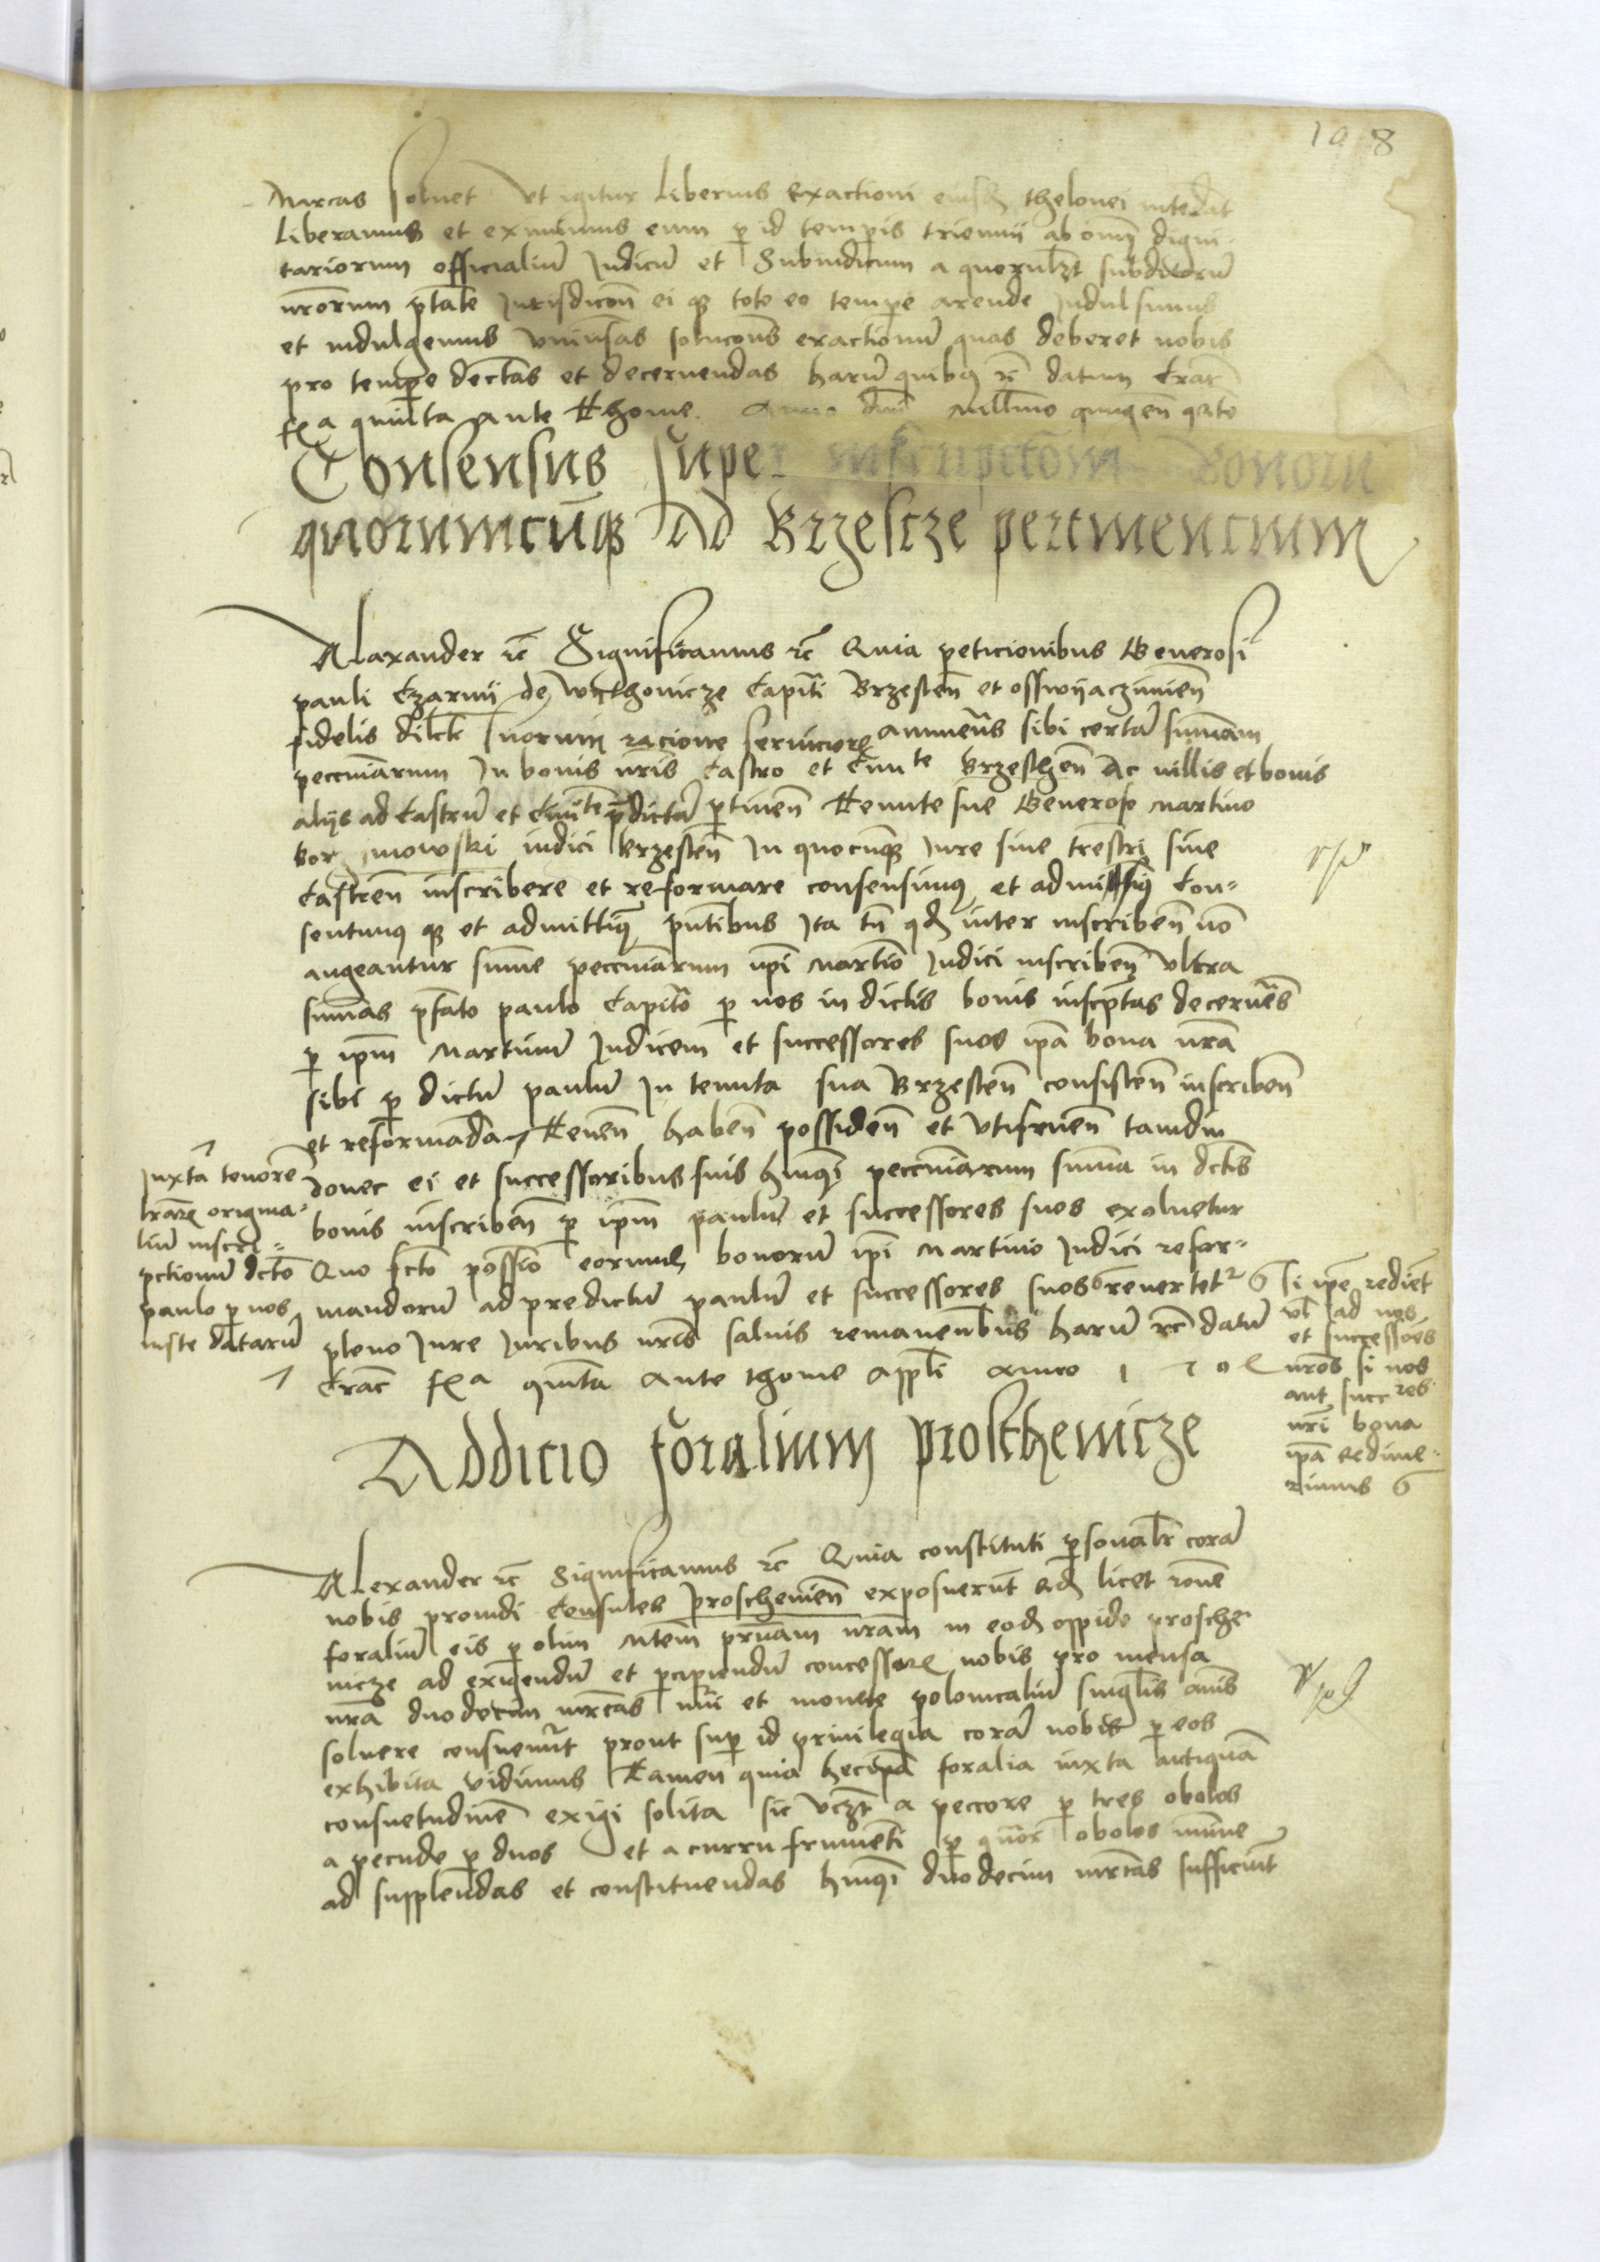 108
Mrcas soluet Vt igitur liberius exactioni eiusd thelonei intedat
liberamus et eximimus eum p id temporis triennii ab omni digni-
tariorum officialiu Judicu et Subiudicum a quorulzt subditoru
nrorum ptate Jurisdicon ei qz toto eo tempe arende Indulsimus
et indulgemus vniusas soluconis exactionu quas deberet nobis
pro tempe dectas et decernendas haru quibus rc datum Crac
fa quinta ante Thome Anno dni Millmo quingen qrto
Consensus super inscripctom bonoru
quorumcuqz Ad Brzescze pertinencium
Alaxander rc Significamus rc Quia peticionibus Generosi
pauli Czarnii de Withowicze Capiti Brzesten et osswijaczimien
fidelis dilcti suorum racione seruicior annuetes sibi certa summam
peccuniarum In bonis nris Castro et Ciuite Brzesthen Ac villis et bonis
alijs ad Castru et Ciuitem pdicta ptinen Tenute sue Generoso Martino
mowski iudici Brzesten In quocunqz Jure siue trestri siue
Castren inscribere et reformare consensimus et admisimus Con-
sentimus qz et admittimus pntibus Ita tn qd inter inscriben no
augeantur sume peccuniarum ipi Martino Judici inscriben vltra
sumas pfato paulo Capito p nos in dictis bonis inscptas decernetes
p ipm Martinu Judicem et successores suos ipa bona nra
sibi p dictu paulu In tenuta sua Brzesten consisten inscriben
et reformada Tenen haben possiden et vtifruen tamdiu
donec ei et successoribus suis hmoi peccuniarum suma in dctis
bonis inscriben p ipm paulu et successores suos exoluetur
Quo fcto possio eorund bonoru ipi Martino Judici refor-
mandoru ad predictu paulu et successores suos reuertetr
pleno Jure Juribus nris saluis remanentibus haru rc datu
Crac fa quinta ante thome appli Anno
Juxta tenore
lrar origina-
liu inscri-
pctionu dcto
paulo p nos
iuste dataru
si ipe rediet
vl ad nos
et successores
nros si nos
aut succres
nri bona
ipa redime-
rimus
Addicio foralium prosthenicze
Alexander rc Significamus rc Quia constituti psonalr cora
nobis prouidi Consules proschenien exposuerut qd licet rone
foraliu eis p olim Mtem pruam nram in eod oppido prosche
nicze ad exigendu et pcipiendu concessor nobis pro mensa
nra duodecim mrcas nui et monete polonicaliu singlis anis
soluere consueuerut prout sup id priuilegia cora nobis p eos
exhibita vidimus Tamen quia hec ipa foralia iuxta antiqua
consuetudine exigi solita sic vczt a peccore p tres obolos
a pecude p duos et a curru frumeti p quor obolos minime
ad supplendas et constituendas hmoi duodecim mrcas sufficiut